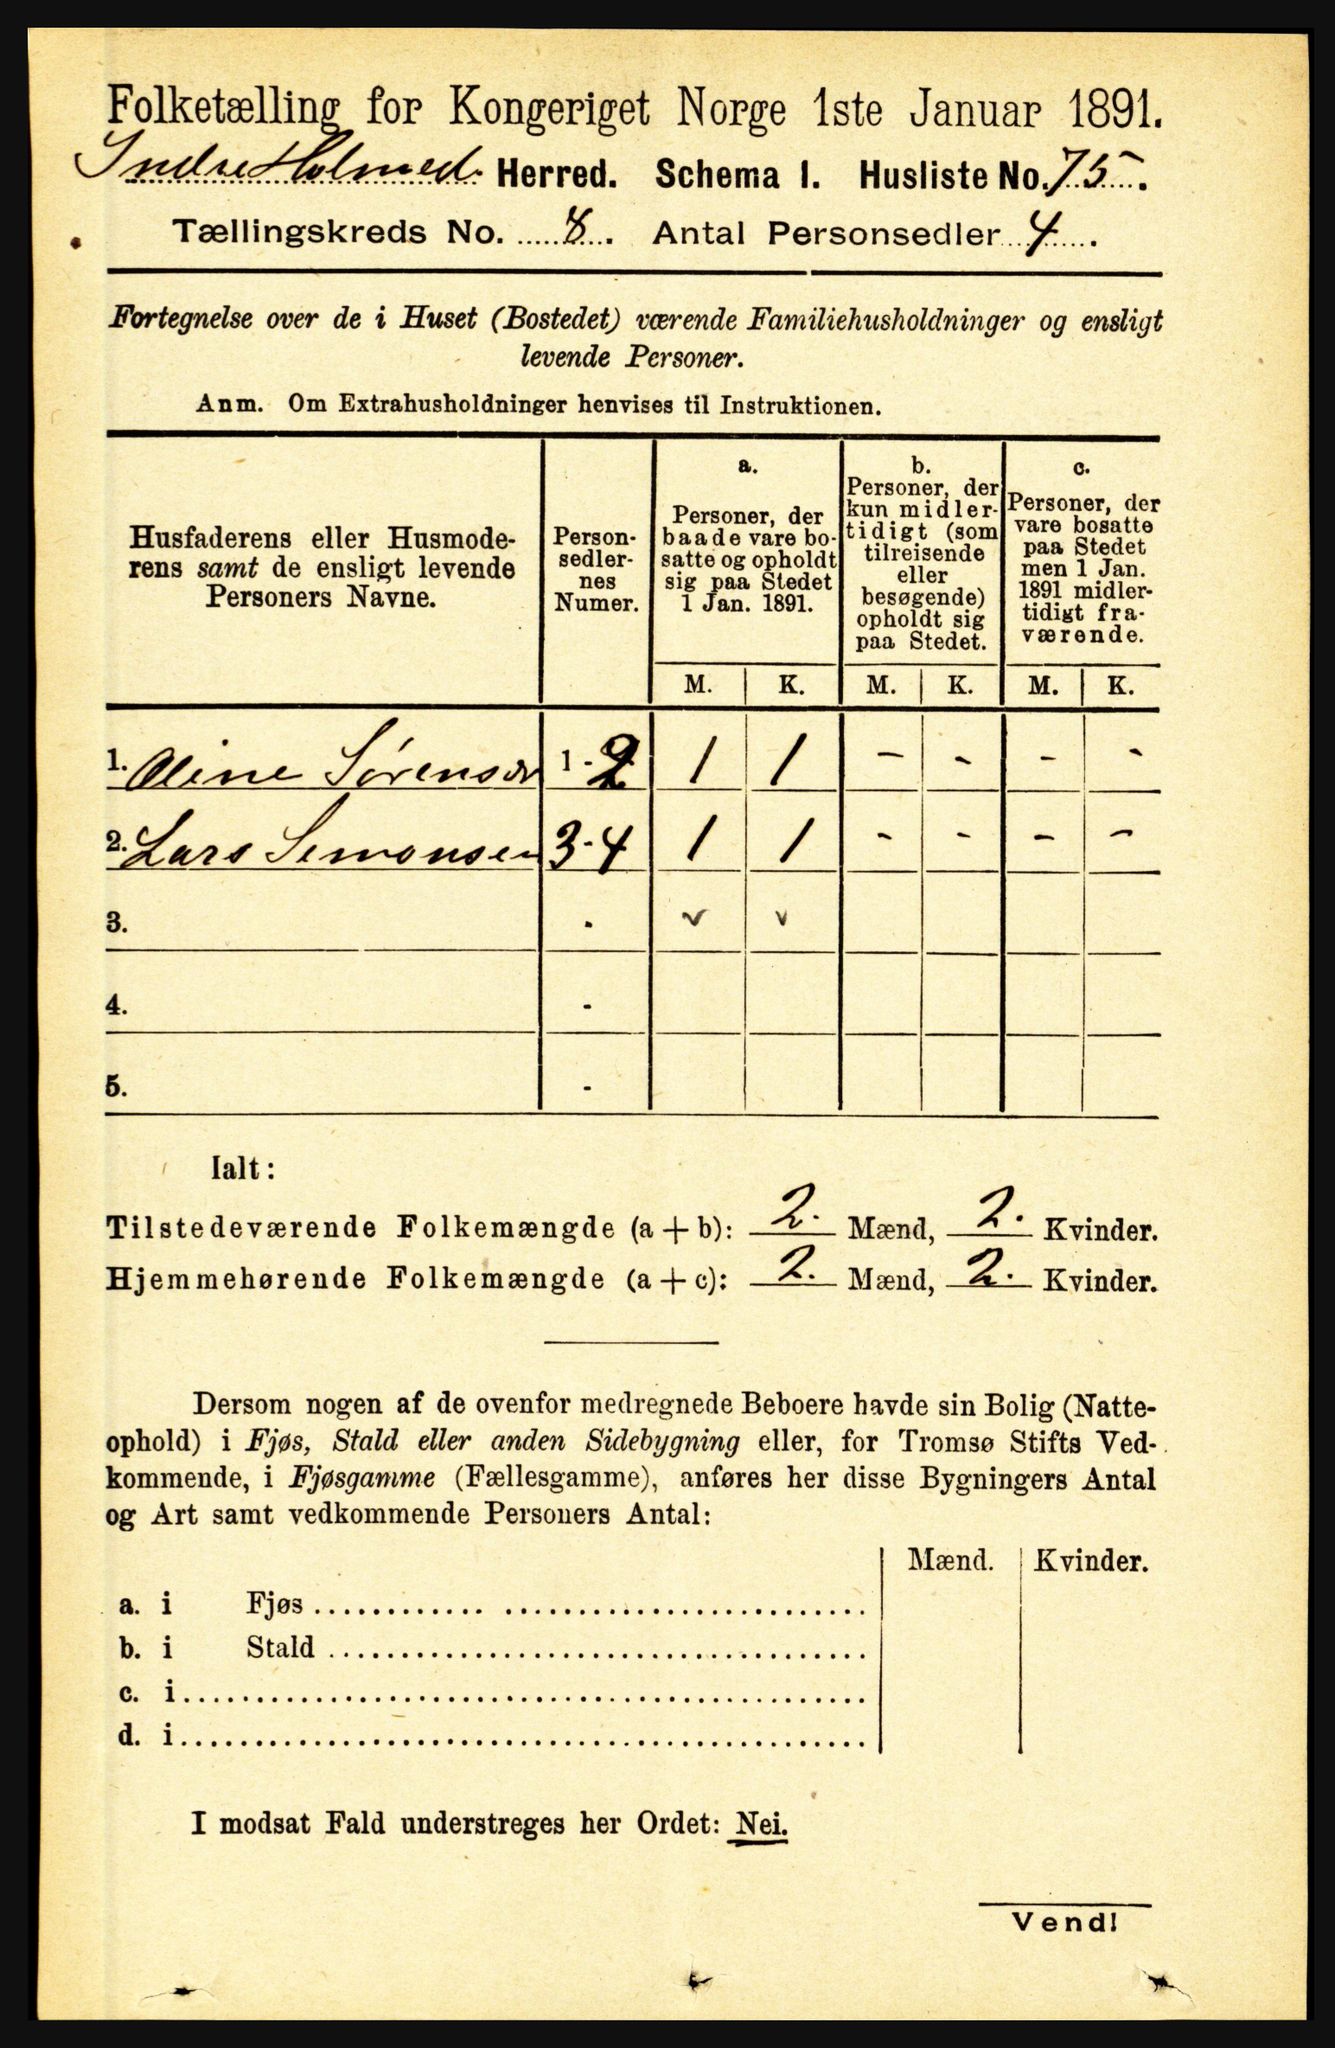 Folketælling for Kongeriget Norge 1ste Januar 1891.
Indre Holmed. Herred. Schema I. Husliste No. 75.
Tællingskreds No. 8. Antal Personsedler 4.
Fortegnelse over de i Huset (Bostedet) værende Familiehusholdninger og ensligt
levende Personer.
Anm. Om Extrahusholdninger henvises til Instruktionen.
Husfaderens eller Husmode-
rens samt de ensligt levende
Personers Navne.
Person-
sedler-
nes
Numer.
a.
Personer, der
baade vare bo-
satte og opholdt
sig paa Stedet
1 Jan. 1891.
b.
Personer, der
kun midler-
tidigt (som
tilreisende
eller
besøgende)
opholdt sig
paa Stedet.
c.
Personer, der
vare bosatte
paa Stedet
men 1 Jan.
1891 midler-
tidigt fra-
værende.
M. K. M. K. M. K.
1. Oline Sørensdr 1 - 2 1 1 - - - -
2. Lars Simonsen 3 - 4 1 1 - - - -
3. - v v
4. -
5. -
Ialt:
Tilstedeværende Folkemængde (a + b): 2. Mænd, 2. Kvinder.
Hjemmehørende Folkemængde (a + c): 2. Mænd, 2. Kvinder.
Dersom nogen af de ovenfor medregnede Beboere havde sin Bolig (Natte-
ophold) i Fjøs, Stald eller anden Sidebygning eller, for Tromsø Stifts Ved-
kommende, i Fjøsgamme (Fællesgamme), anføres her disse Bygningers Antal
og Art samt vedkommende Personers Antal:
Mænd. Kvinder.
a. i Fjøs
b. i Stald
c. i
d. i
I modsat Fald understreges her Ordet: Nei.
Vend!